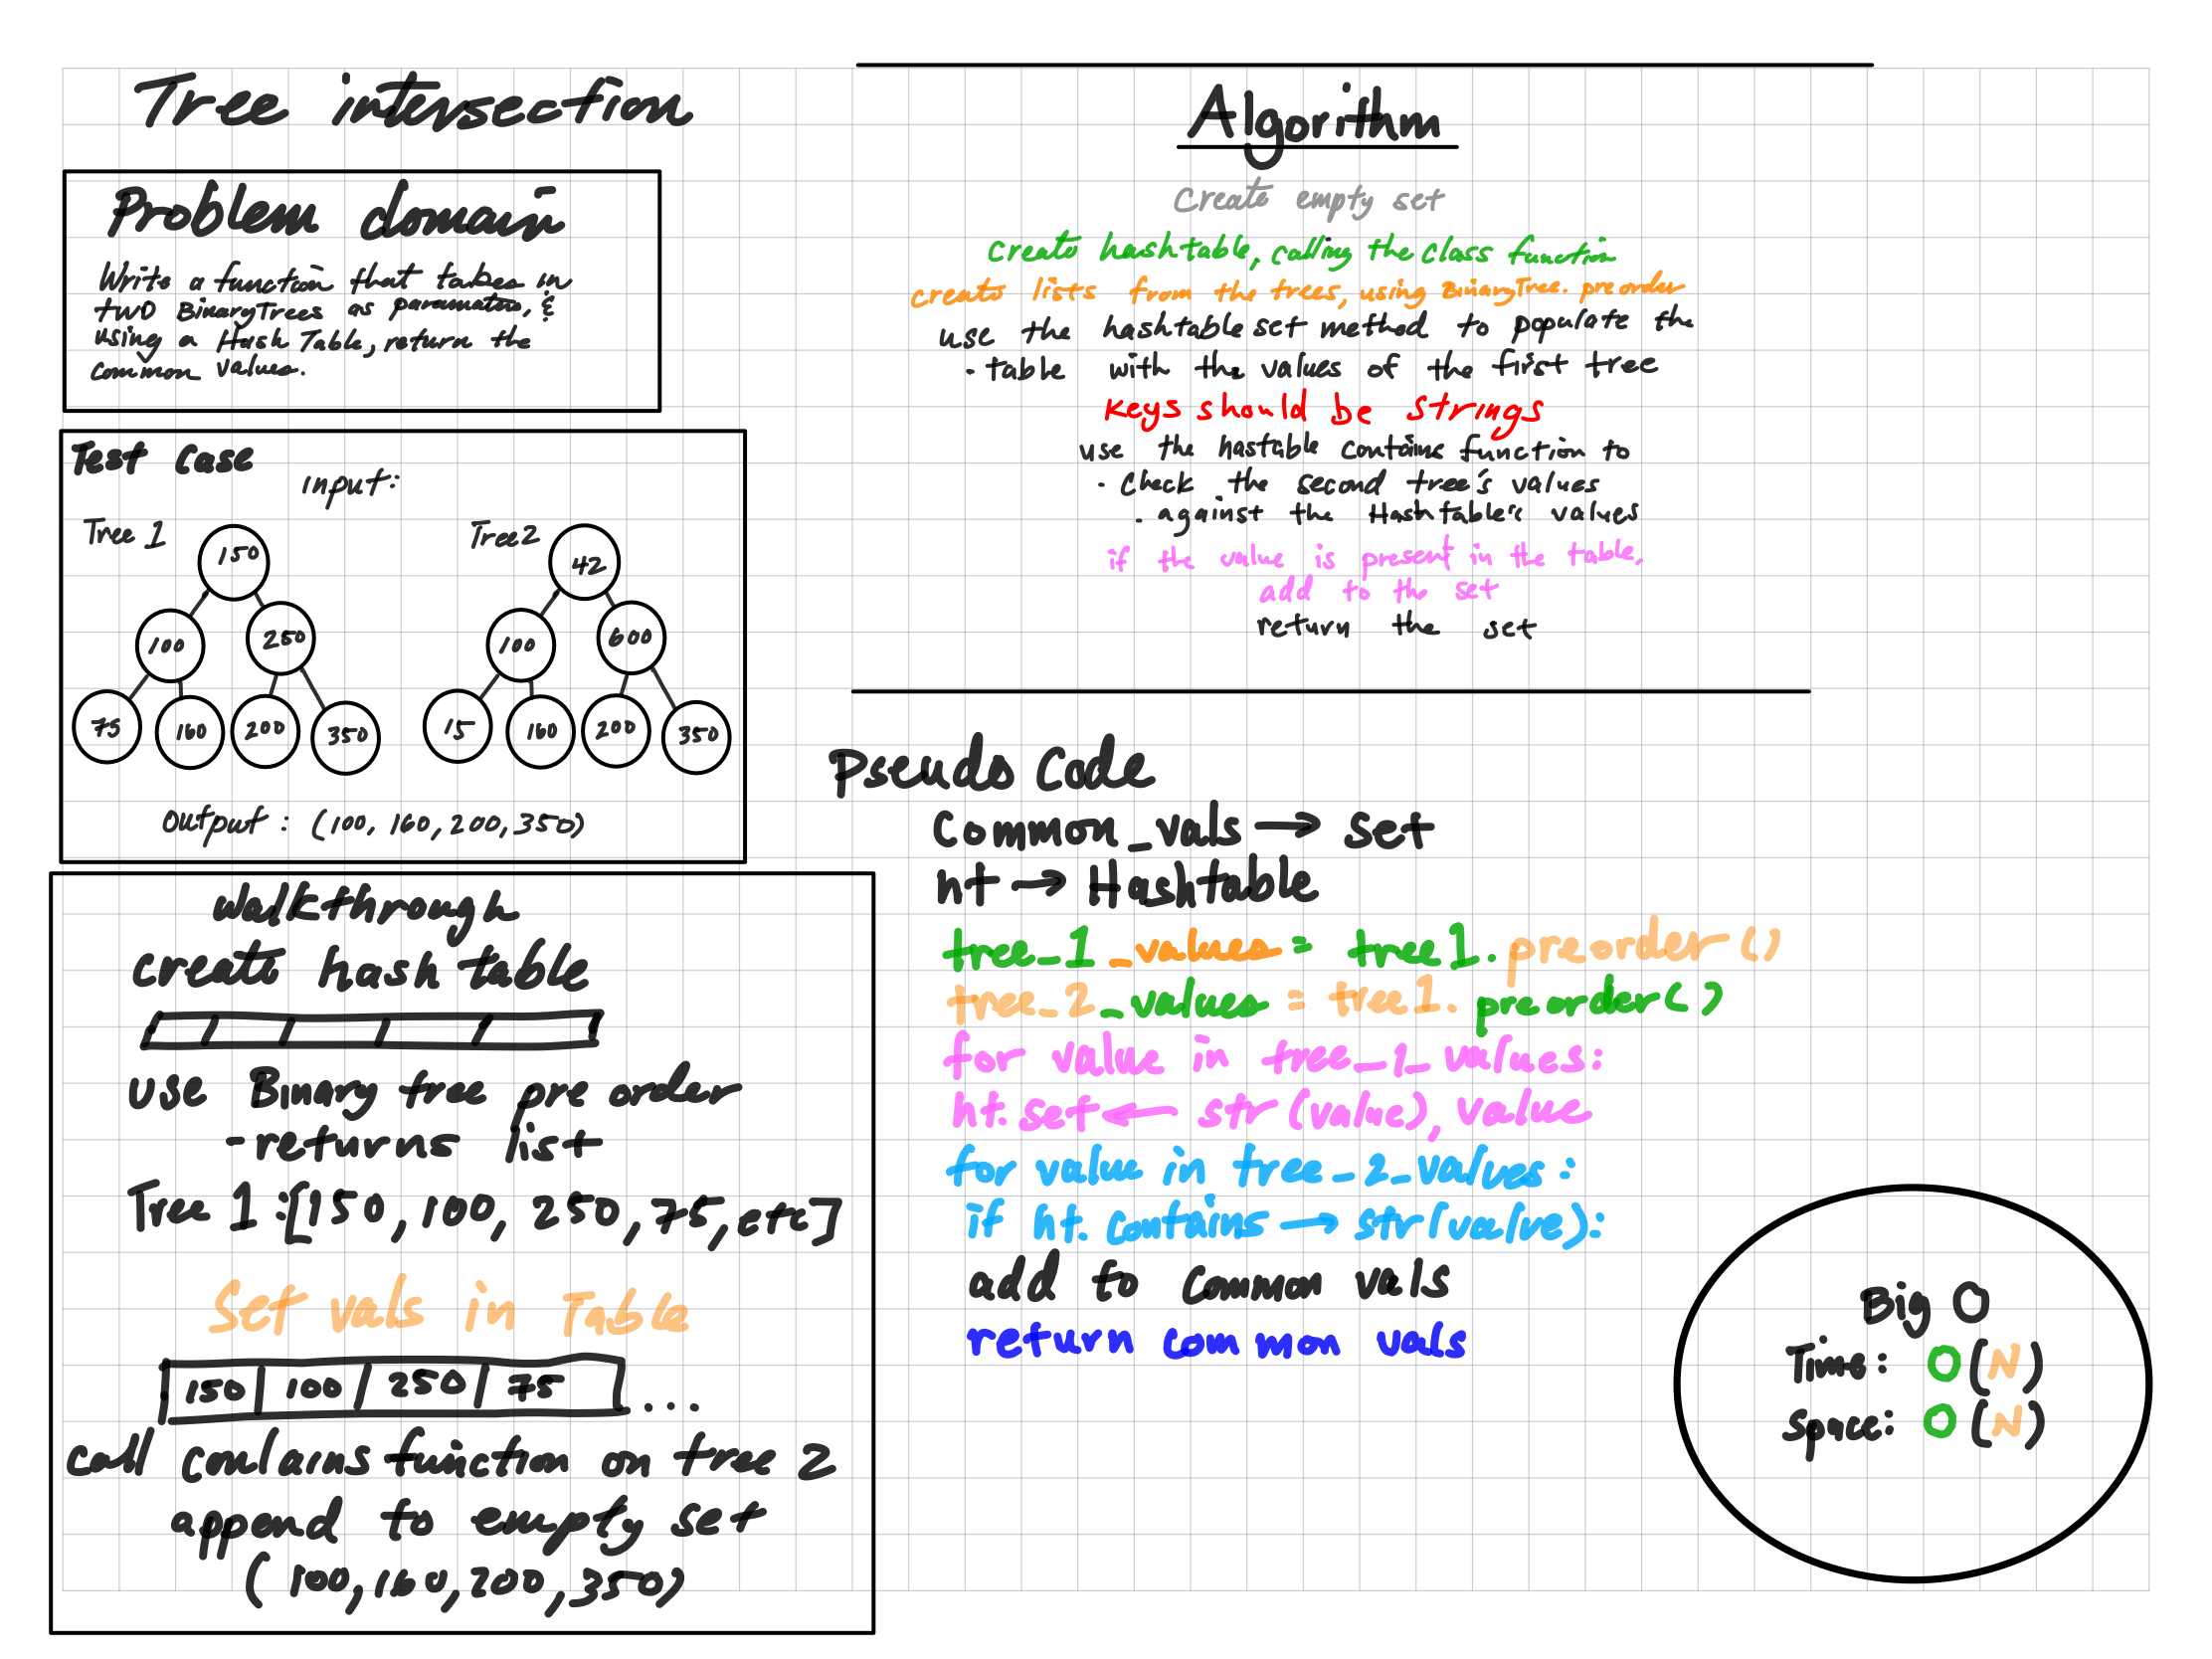 Tree intersection
Problem domain
Write a function that takes in
two BinaryTrees as paramaters, &
using a Hash Table, return the
common values.
Test Case
input:
Tree 1
150
100
250
75
160
200
350
Tree 2
42
100
600
15
160
200
350
Output : (100, 160, 200, 350)
Walkthrough
create hash table
use Binary tree pre order
- returns list
Tree 1 :[150, 100, 250, 75, etc]
Set vals in Table
150 | 100 | 250 | 75 ...
call contains function on tree 2
append to empty set
(100, 160, 200, 350)
Algorithm
Create empty set
create hashtable, calling the class function
create lists from the trees, using BinaryTree.preorder
use the hashtable set method to populate the
- table with the values of the first tree
Keys should be strings
use the hastable contains function to
- check the second tree's values
- against the Hashtable's values
if the value is present in the table,
add to the set
return the set
Pseudo Code
Common_vals → set
ht → Hashtable
tree_1_values = tree1.preorder()
tree_2_values = tree1.preorder()
for value in tree_1_values:
ht.set ← str(value), value
for value in tree_2_values:
if ht.contains → str(value):
add to common vals
return common vals
Big O
Time: O(N)
Space: O(N)